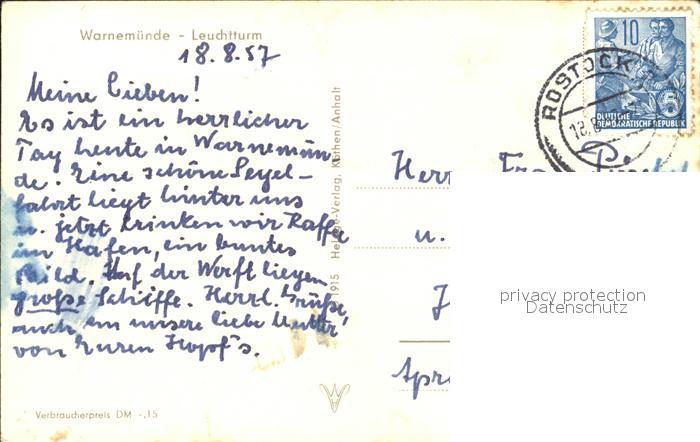 Warnemünde - Leuchtturm
18.8.57
Meine Lieben!
Es ist ein herrlicher
Tag heute in Warnemün-
de. Eine schöne Segel-
fahrt liegt hinter uns
u. jetzt trinken wir Kaffee
im Hafen, ein buntes
Bild. Auf der Werft liegen
große Schiffe. Herzl. Grüße,
auch an unsere liebe Mutter
von Euren Hopf's.
Verbraucherpreis DM -,15
Verlag, Köthen/Anhalt
ROSTOCK
10
5
DEUTSCHE
DEMOKRATISCHE REPUBLIK
Herr
u.
privacy protection
Datenschutz